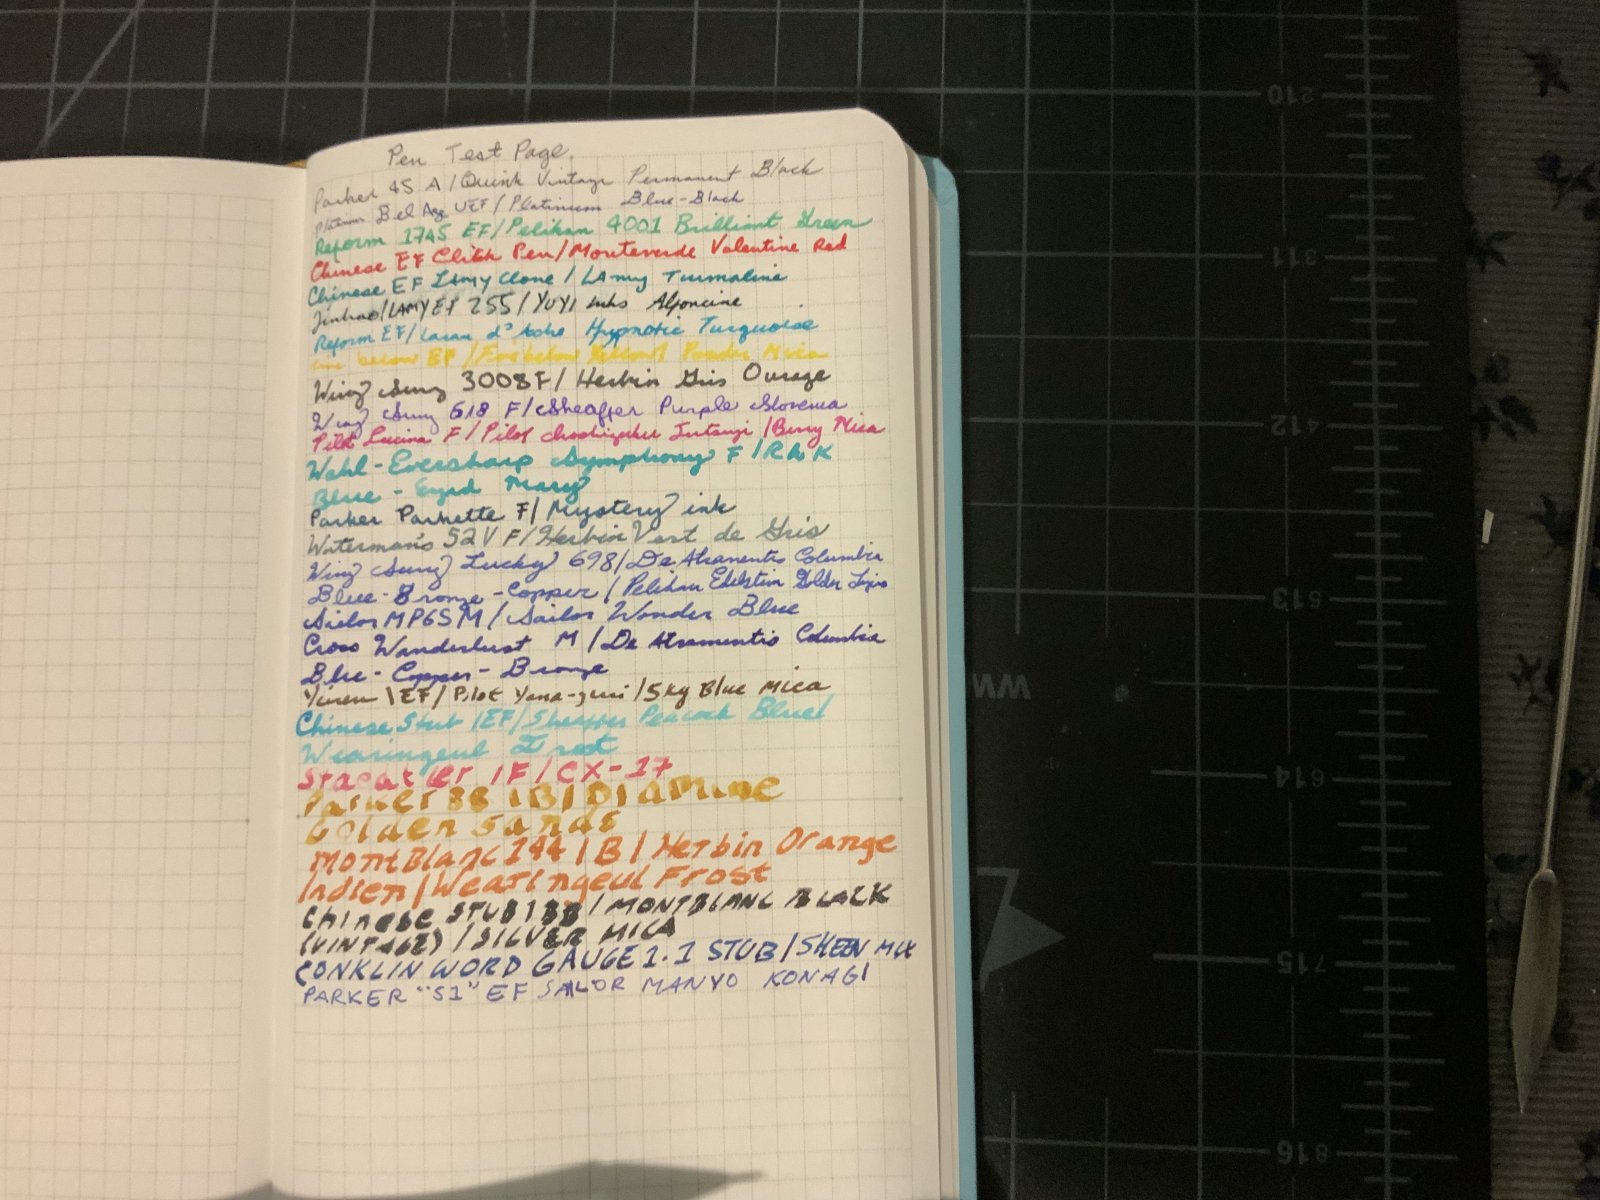 Pen Test Page.
Parker 45 A/Quink Vintage Permanent Black
Platinum Bel Age UEF/Platinum Blue-Black
Reform 1745 EF/Pelikan 4001 Brilliant Green
Chinese EF Click Pen/Monteverde Valentine Red
Chinese EF LAMY Clone/LAmy Turmaline
Jinhao/LAMY EF 255/YUYI inks
Reform EF/Caran d'Ache Hypnotic Turquoise
Mica
Wing Sung 3008 F/Herbin Gris Ourage
Wing Sung 618 F/Sheaffer Purple Slovenia
Pilot Lucina F/Pilot /Berry Mica
Wahl-Eversharp Symphony F/R&K
Blue-Eyed Mary
Parker Parkette F/Mystery ink
Waterman's 52V F/Herbin Vert de Gris
Wing Sung Lucky 698/De Atramentis Columbia
Blue-Bronze-Copper/Pelikan Edelstein Golden
Sailor MP65 M/Sailor Wonder Blue
Cross Wanderlust M/De Atramentis Columbia
Blue-Copper-Bronze
Yiren |EF/Pilot Yama-guri/Sky Blue Mica
Chinese Stub |EF/Sheaffer Peacock Blue/
Wearingeul Frost
|F/CX-17
Parker 88 |B|Diamine
Golden Sands
MontBlanc 144|B|Herbin Orange
Indien/Wearingeul Frost
Chinese STUB|BB/MONTBLANC BLACK
(VINTAGE)/SILVER MICA
CONKLIN WORD GAUGE 1.1 STUB/SHEEN MIX
PARKER "51" EF SAILOR MANYO KONAGI
210
311
412
513
614
715
816
WW